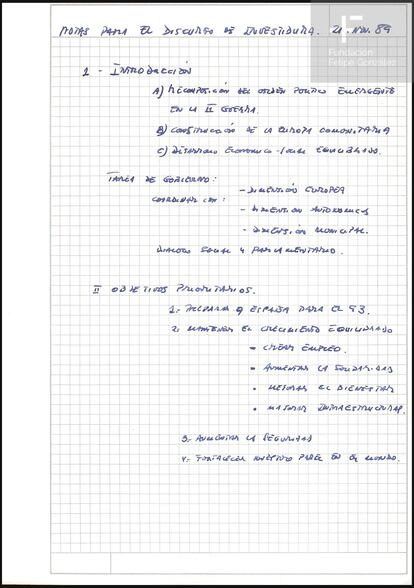 NOTAS PARA EL DISCURSO DE INVESTIDURA. 21. NOV. 89
F
Fundación
Felipe González
1 - INTRODUCCIÓN
A) RECOMPOSICIÓN DEL ORDEN POLÍTICO EMERGENTE
EN LA II GUERRA.
B) CONSTRUCCIÓN DE LA EUROPA COMUNITARIA
C) DESARROLLO ECONOMICO-SOCIAL EQUILIBRADO.
TAREA DE GOBIERNO:
COORDINAR CON:
- DIMENSIÓN EUROPEA
- DIMENSION AUTONOMICA
- DIMENSION MUNICIPAL.
DIALOGO SOCIAL Y PARLAMENTARIO.
II OBJETIVOS PRIORITARIOS.
1.- PREPARAR A ESPAÑA PARA EL 93.
2.- MANTENER EL CRECIMIENTO EQUILIBRADO
- CREAR EMPLEO.
- AUMENTAR LA SOLIDARIDAD
- MEJORAR EL BIENESTAR
- MEJORAR INFRAESTRUCTURAS.
3.- AUMENTAR LA SEGURIDAD
4.- FORTALECER NUESTRO PAPEL EN EL MUNDO.